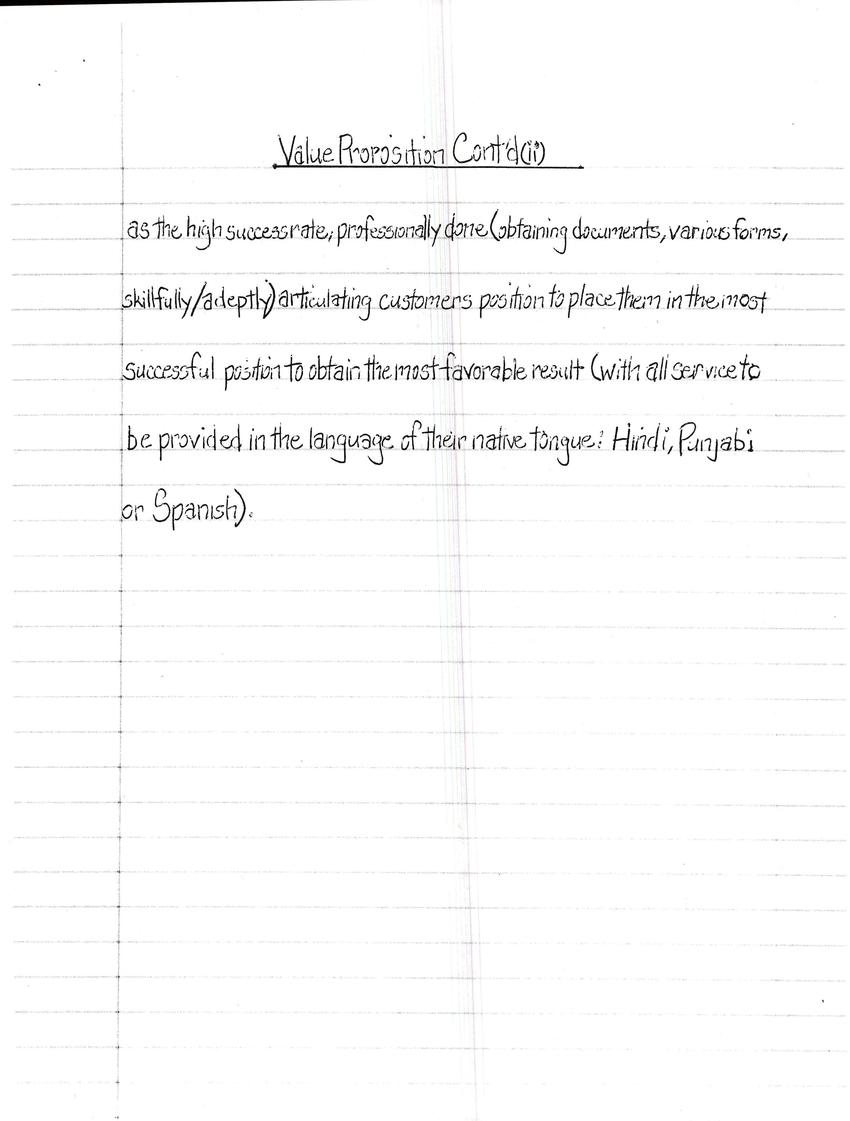 Value Proposition Cont'd (ii)
as the high success rate, professionally done (obtaining documents, various forms,
skillfully/adeptly) articulating customers position to place them in the most
successful position to obtain the most favorable result (with all service to
be provided in the language of their native tongue: Hindi, Punjabi
or Spanish).